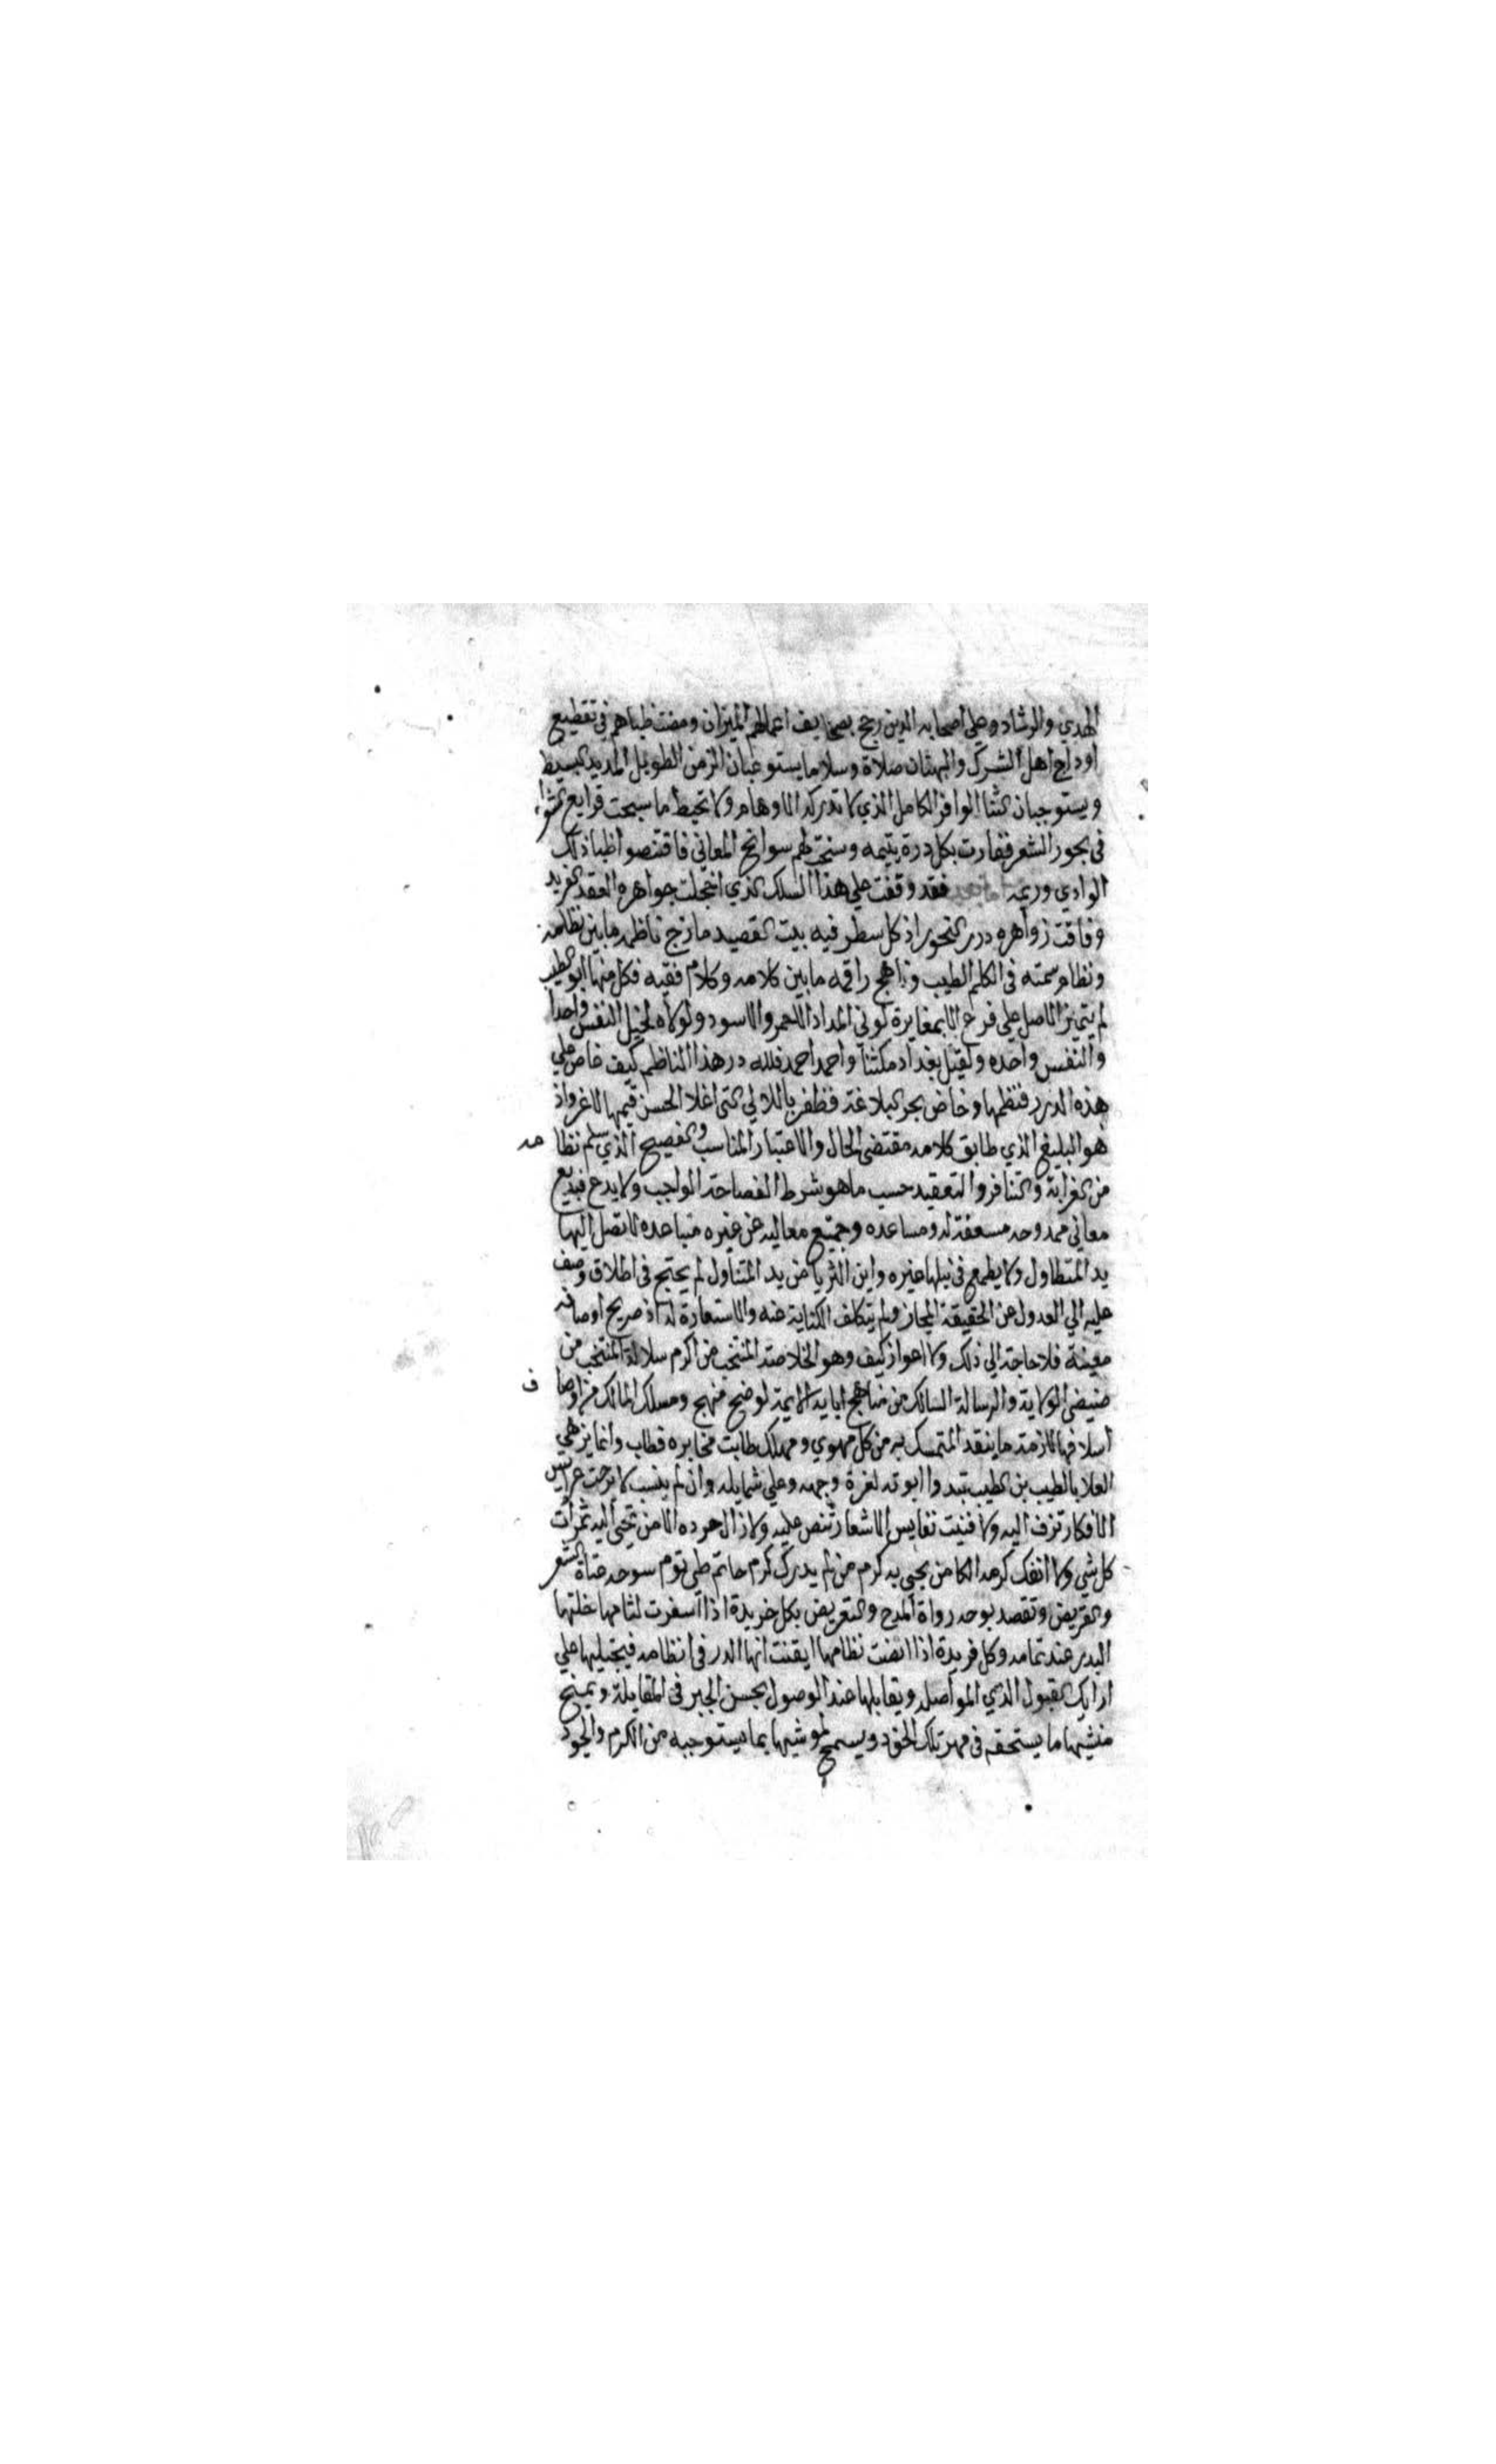 الهدي والرشاد وعلي اصحابه الذين رجح بصحايف اعمالهم الميزان ومضت ظباهم في تقطيع
اوداج اهل الشرك والبهتان صلاة وسلاما يستوعبان الزمن الطويل المديد البسيط
ويستوجبان الثنا الوافر الكامل الذي لا تدركه الاوهام ولا تحيط ما سبحت قرايح
في بحور الشعر ففازت بكل درة يتيمه وسنحت لهم سوانح المعاني فاقتنصوا ظبا ذلك
الوادي وريمه اما بعد فقد وقفت علي هذا السلك الذي اخجلت جواهره العقد الفريد
وفاقت زواهره درر النحور اذ كل سطر فيه بيت القصيد مازج ناظمه ما بين نظامه
ونظام سمته في الكلم الطيب وناهج راقمه ما بين كلامه وكلام فقيه فكل منها ابو الطيب
لم يتميز الاصل علي فرع الا بمغايرة لوني المداد الاحمر والاسود ولولاه لخيل النفس واحدا
والنفس واحده ولقيل بغداد مكتنا واحمد احمد فلله در هذا الناظم كيف غاص علي
هذه الدرر فنظمها وخاض بحر البلاغة فظفر باللالي التي اغلا الحسن قيمها لا غرو اذ
هو البليغ الذي طابق كلامه مقتضى الحال والاعتبار المناسب والفصيح الذي سلم نظامه
من الغرابة والتنافر والتعقيد حسب ما هو شرط الفصاحة الواجب ولا بدع فبديع
معاني ممدوحه مسعفة له ومساعده وجميع معاليه عن غيره متباعده لا تصل اليها
يد المتطاول ولا يطمع في نيلها غيره واين الثريا من يد المتناول لم يحتج في اطلاق وصف
عليه الي العدول عن الحقيقة المجاز ولم يتكلف الكناية عنه والاستعارة له اذ صريح اوصافه
مغينة فلا حاجة الي ذلك ولا اعواز كيف وهو الخلاصة المنتخب من اكرم سلالة المنتجب من
ضيضى الولاية والرسالة السالك من مناهج ابايه الايمة لوضح منهج ومسلك المالك من اوصاف
اسلافه لازمة ما ينقد المتمسك به من كل مهوي ومهلك طابت مخابره فطاب وانما يزهي
العلا بالطيب بن الطيب تبدوا ابوته لغرة وجهه وعلي شمايله وان لم ينسب لا برحت عرايس
الافكار تزف اليه ولا فتيت نفايس الاشعار تنص عليه ولا زال جوده الامن تجي اليه ثمرات
كل شي ولا انفك كرمه الكامن يحيي به كرم من لم يدرك كرم حاتم طي تؤم سوحه الشعر
والقريض وتقصد بوحه رواة المدح والتعريض بكل خريدة اذا اسفرت لثامها خلتها
البدر عند تمامه وكل فريدة اذا نظامها ايقنت انها الدر في انظامه فيجتليها علي
ارايك القبول الذي المواصله ويقابلها عند الوصول بحسن الجبر في المقابلة ويمنح
منشيها ما يستحقه في مهر تلك الخود ويسمح لموشيها بما يستوجبه من الكرم والجود